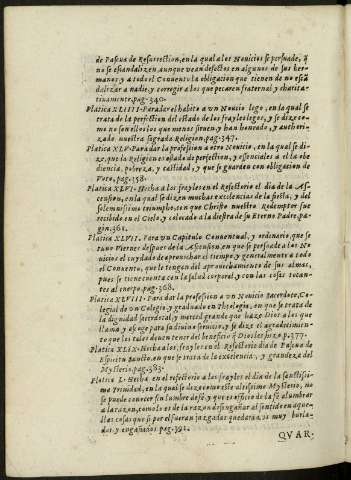 de Pascua de Resurrection, en la qual a los Novicios se persuade, q̃
no se escandalizen, aunque vean defectos en algunos de sus her-
manos, y a todo el Convento la obligacion que tienen de no escã
dalizar a nadie, y corregir a los que pecaren fraternal y charita-
tivamente. pag. 340.
Platica XLIIII. Para dar el habito a un Novicio lego, en la qual se
trata de la perfection del estado de los frayles legos, y se dize co-
mo no son ellos los que menos sirven, y han honrado, y authori-
zado nuestra sagrada Religion. pag. 347.
Platica XLV. Para dar la profession a otro Novicio, en la qual se di-
ze, que la Religion es estado de perfection, y essenciales a el la obe
diencia, pobreza, y castidad, y que se guarden con obligacion de
Voto. pag. 358.
Platica XLVI. Hecha a los frayles en el Refectorio el dia de la As-
cension, en la qual se dizen muchas excelencias de la fiesta, y del
solemnissimo triumpho, con que Christo nuestro Redemptor fue
recibido en el Cielo, y colocado a la diestra de su Eterno Padre. pa-
gin. 361.
Platica XLVII. Para un Capitulo Conventual, y ordinario, que se
tuvo Viernes despues de la Ascension, en que se persuade a los No
vicios el cuydado de aprovechar el tiempo y generalmente a todo
el Convento, que le tengan del aprovechamiento de sus almas,
pues se tiene cuenta con la salud corporal, y con las cosas tocan-
tes al cuerpo. pag. 368.
Platica XLVIII. Para dar la profession a un Novicio sacerdote, Co-
legial de un Colegio, y graduado en Theologia, en que se trata de
la dignidad sacerdotal, y merced grande que haze Dios a los que
llama, y escoge para su divino servicio, y se dize el agradecimien-
to que los tales deven tener del beneficio q̃ Dios les hizo. p. 377.
Platica XLIX. Hecha a los frayles en el Refectorio dia de Pascua de
Espiritu sancto, en que se trata de la excelencia, y grandeza del
Mysterio. pag. 383.
Platica L. Hecha en el refectorio a los frayles el dia de la sanctissi-
ma Trinidad, en la qual se dize como este altissimo Mysterio, no
se puede conocer sin lumbre de fè, y que es officio de la fè alumbrar
a la razon, como lo es de la razon desengañar al sentido en aque-
llas cosas que si por el fueran juzgadas quedaria, es muy burla-
dos, y engañados. pag. 392.
QVAR-